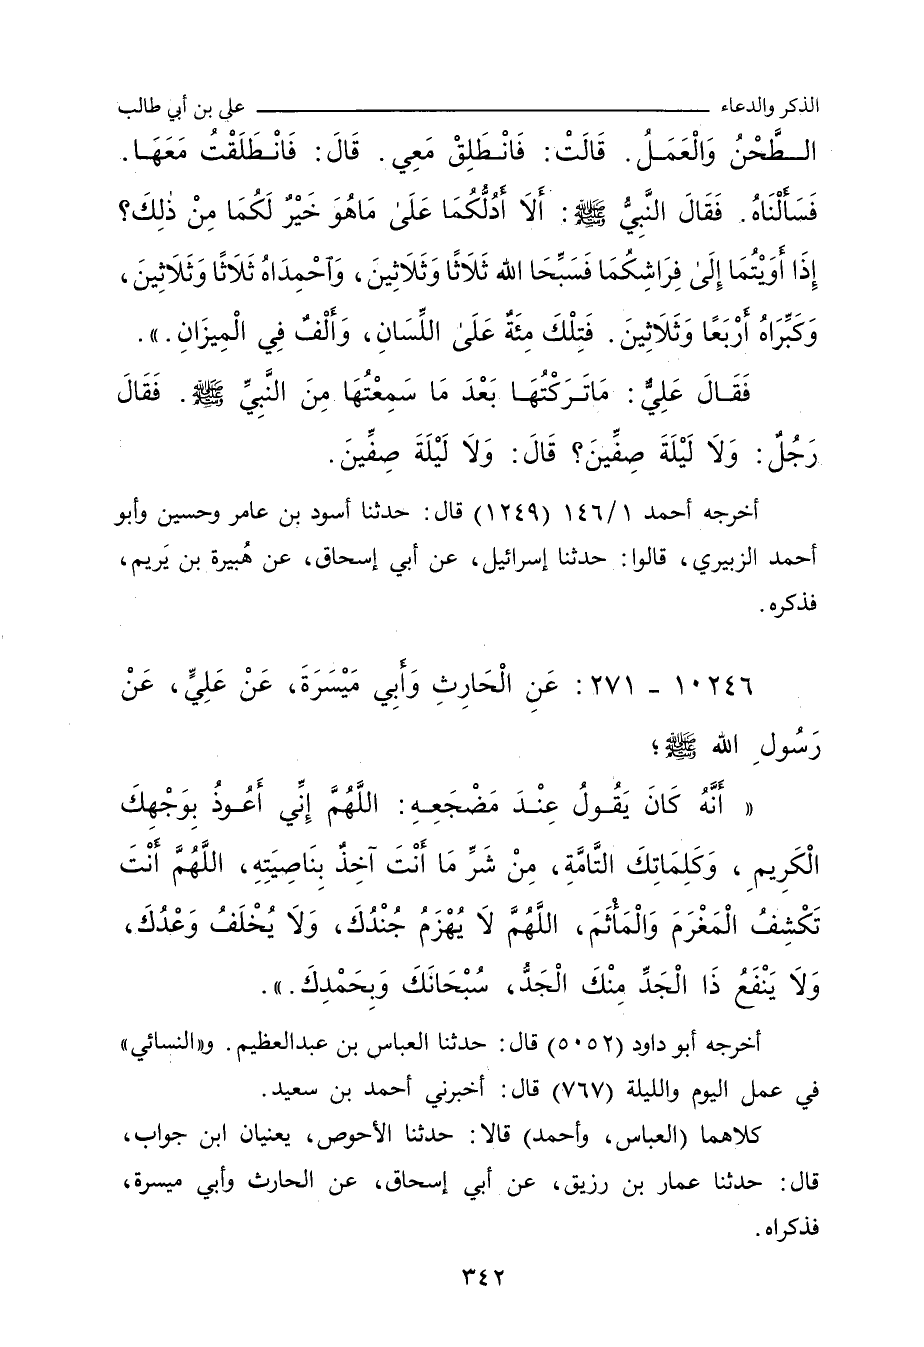 الذكر والدعاء ــــــــ علي بن أبي طالب
الطَّحْنُ وَالْعَمَلُ. قَالَتْ: فَانْطَلِقْ مَعِي. قَالَ: فَانْطَلَقْتُ مَعَهَا.
فَسَأَلْنَاهُ. فَقَالَ النَّبِيُّ ﷺ: أَلَا أَدُلُّكُمَا عَلَىٰ مَاهُوَ خَيْرٌ لَكُمَا مِنْ ذٰلِكَ؟
إِذَا أَوَيْتُمَا إِلَىٰ فِرَاشِكُمَا فَسَبِّحَا اللهَ ثَلَاثًا وَثَلَاثِينَ، وَآحْمِدَاهُ ثَلَاثًا وَثَلَاثِينَ،
وَكَبِّرَاهُ أَرْبَعًا وَثَلَاثِينَ. فَتِلْكَ مِئَةٌ عَلَىٰ اللِّسَانِ، وَأَلْفٌ فِي الْمِيزَانِ.».
فَقَالَ عَلِيٌّ: مَاتَرَكْتُهَا بَعْدَ مَا سَمِعْتُهَا مِنَ النَّبِيِّ ﷺ. فَقَالَ
رَجُلٌ: وَلَا لَيْلَةَ صِفِّينَ؟ قَالَ: وَلَا لَيْلَةَ صِفِّينَ.
أخرجه أحمد ١٤٦/١ (١٢٤٩) قال: حدثنا أسود بن عامر وحسين وأبو
أحمد الزبيري، قالوا: حدثنا إسرائيل، عن أبي إسحاق، عن هُبيرة بن يَريم،
فذكره.
١٠٢٤٦ - ٢٧١: عَنِ الْحَارِثِ وَأَبِي مَيْسَرَةَ، عَنْ عَلِيٍّ، عَنْ
رَسُولِ اللهِ ﷺ؛
« أَنَّهُ كَانَ يَقُولُ عِنْدَ مَضْجَعِهِ: اللَّهُمَّ إِنِّي أَعُوذُ بِوَجْهِكَ
الْكَرِيمِ، وَكَلِمَاتِكَ التَّامَّةِ، مِنْ شَرِّ مَا أَنْتَ آخِذٌ بِنَاصِيَتِهِ، اللَّهُمَّ أَنْتَ
تَكْشِفُ الْمَغْرَمَ وَالْمَأْثَمَ، اللَّهُمَّ لَا يُهْزَمُ جُنْدُكَ، وَلَا يُخْلَفُ وَعْدُكَ،
وَلَا يَنْفَعُ ذَا الْجَدِّ مِنْكَ الْجَدُّ، سُبْحَانَكَ وَبِحَمْدِكَ.».
أخرجه أبو داود (٥٠٥٢) قال: حدثنا العباس بن عبدالعظيم. و«النسائي»
في عمل اليوم والليلة (٧٦٧) قال: أخبرني أحمد بن سعيد.
كلاهما (العباس، وأحمد) قالا: حدثنا الأحوص، يعنيان ابن جواب،
قال: حدثنا عمار بن رزيق، عن أبي إسحاق، عن الحارث وأبي ميسرة،
فذكراه.
٣٤٢